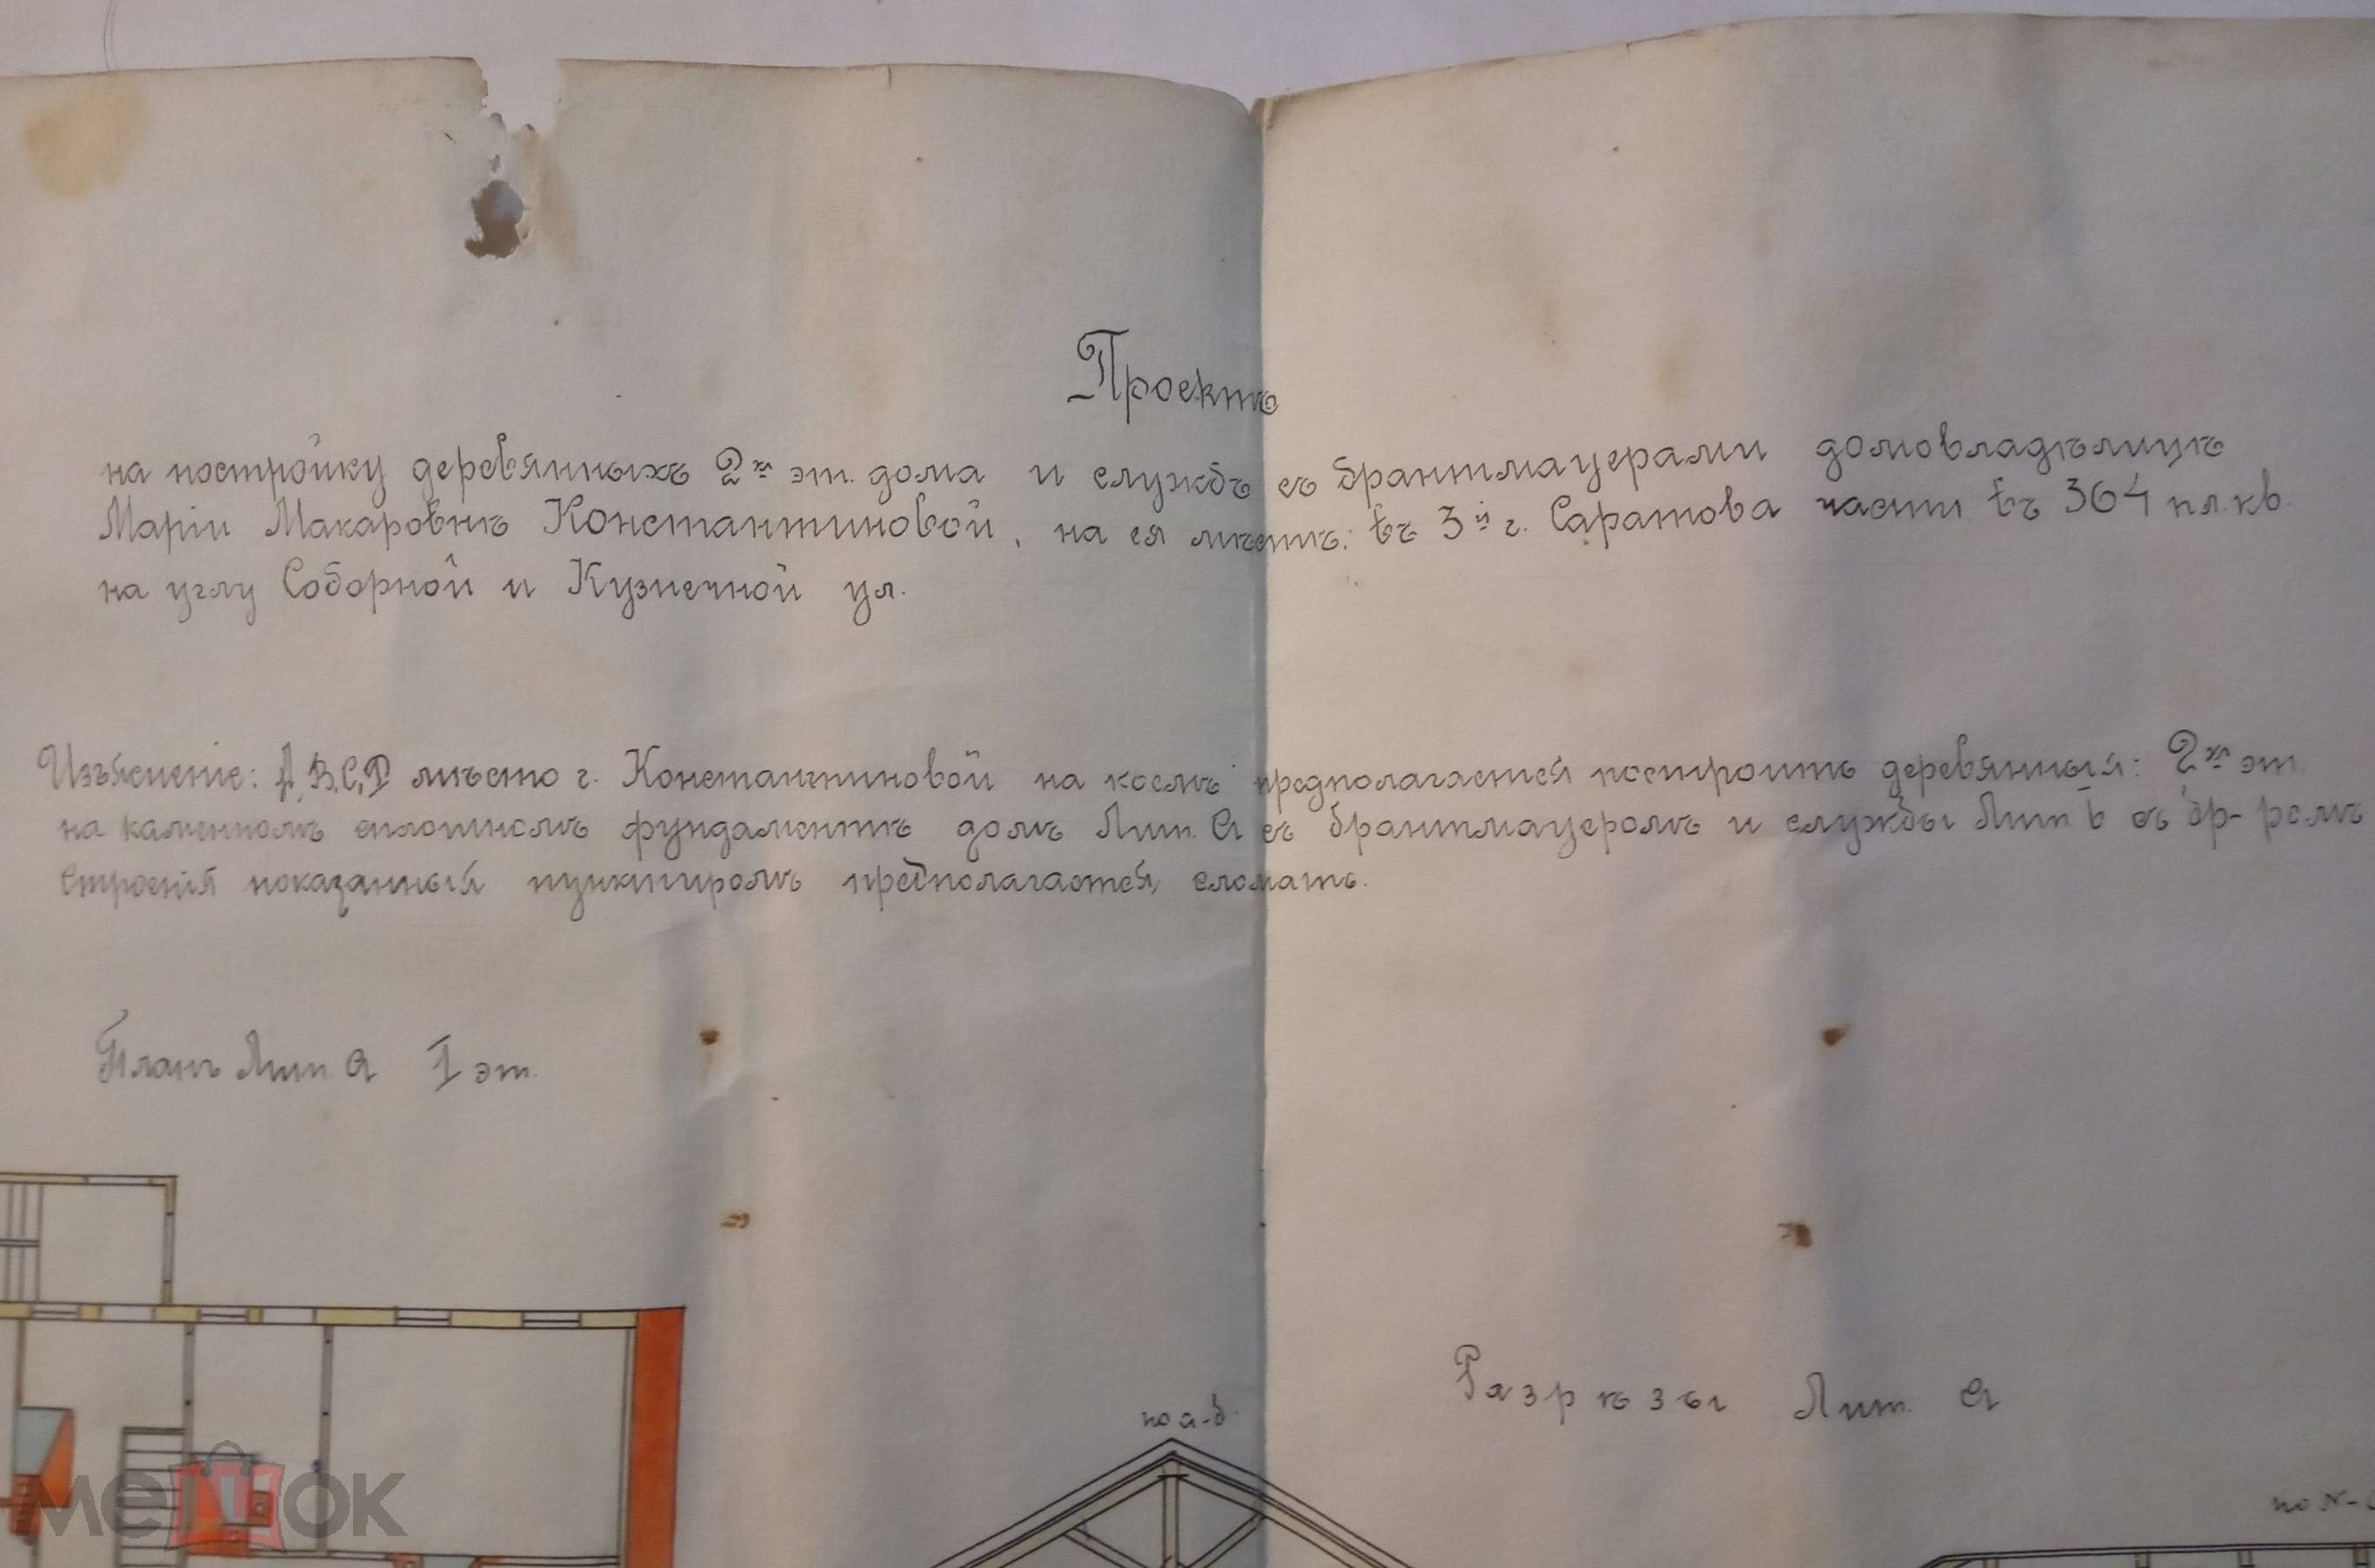 Проектъ
на постройку деревянныхъ 2хъ эт. дома и службъ съ брантмауерами домовладѣлицѣ
Маріи Макаровнѣ Константиновой, на ея мѣстѣ: въ 3й г. Саратова части въ 364 пл.кв.
на углу Соборной и Кузнечной ул.
Изъясненіе: A, B, C, D мѣсто г. Константиновой на коемъ предполагается построить деревянный: 2хъ эт.
на каменномъ сплошномъ фундаментѣ домъ Лит. А съ брантмауеромъ и службы Лит. б съ бр-ромъ
Строенія показанныя пунктиромъ предполагается сломать.
Планъ Лит. А I эт.
Разрѣзы Лит. А
по а-б.
по
мешок